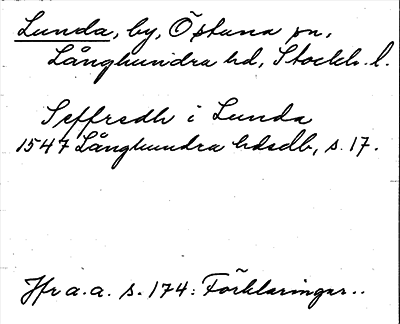 Lunda, by, Östuna sn,
Långhundra hd, Stockh. l.
Seffredh i Lunda
1547 Långhundra hdsdb, s. 17.
Jfr a.a. s. 174: Förklaringar..